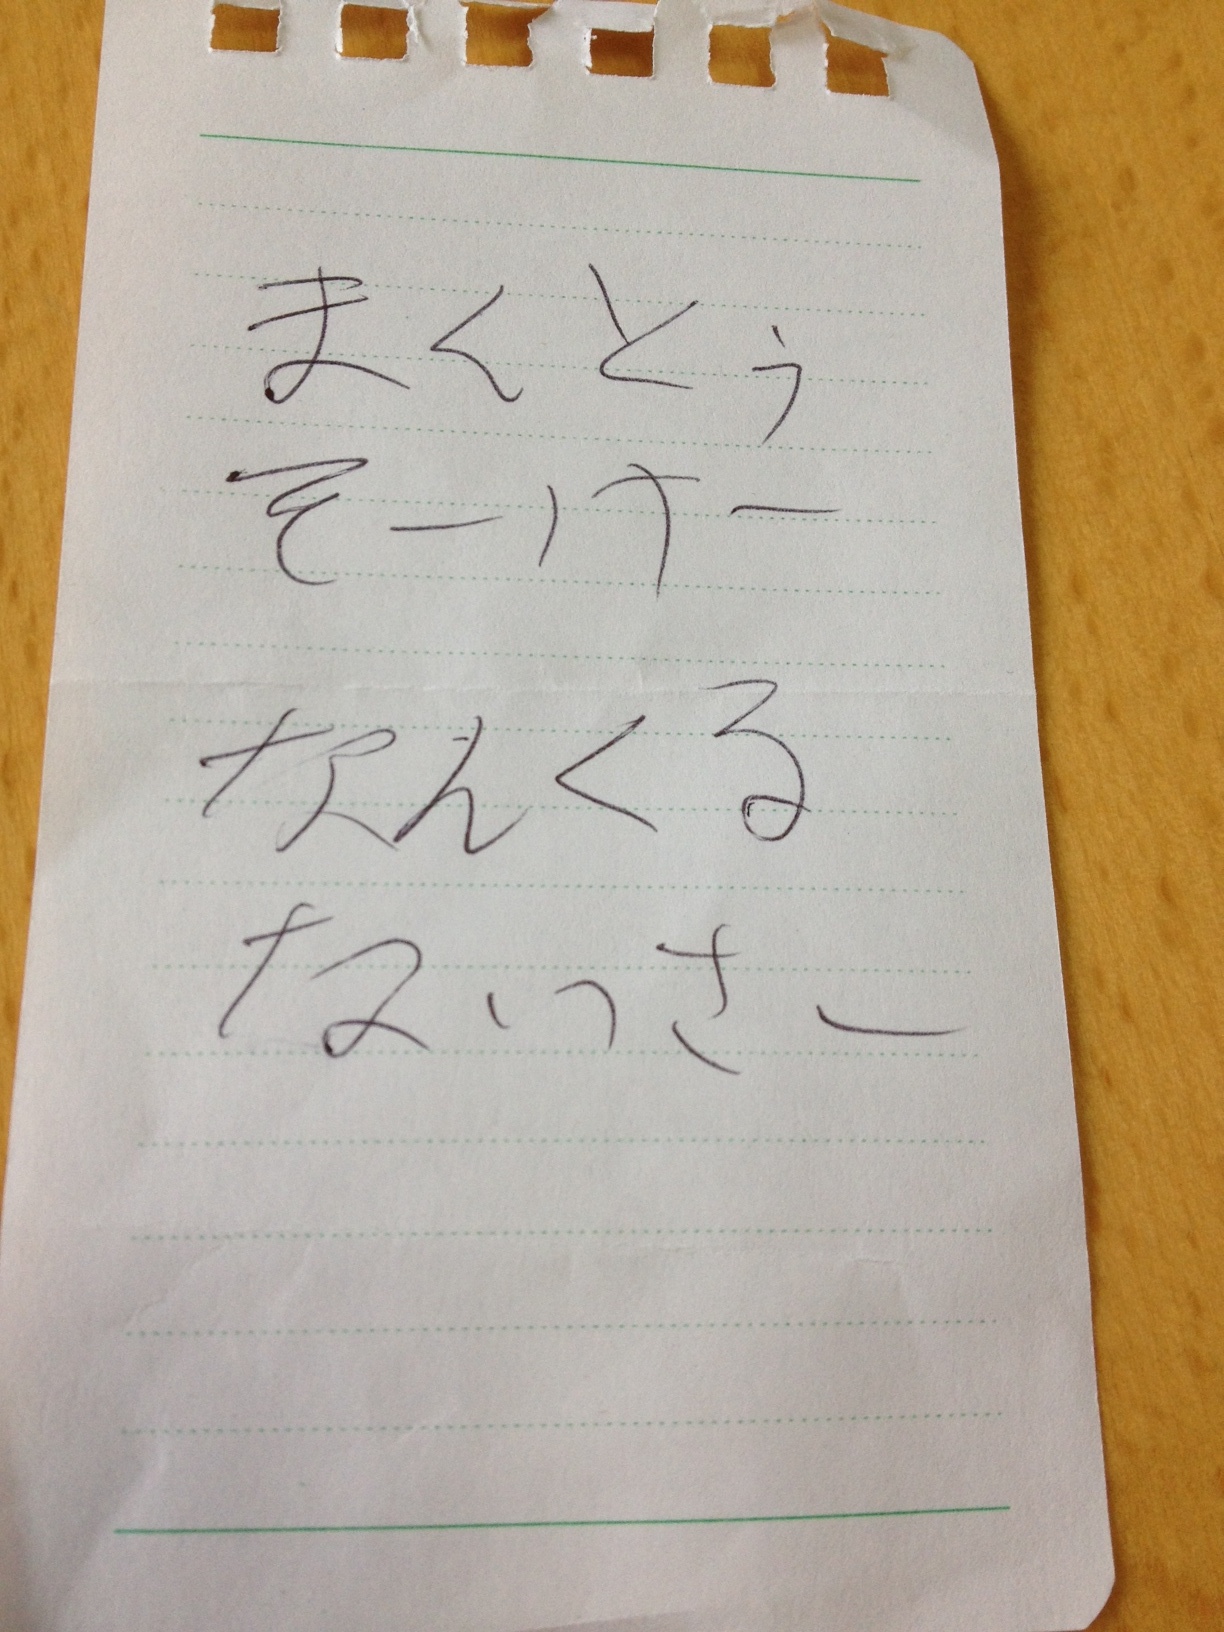 まくとぅ
そーけー
なんくる
ないっさー